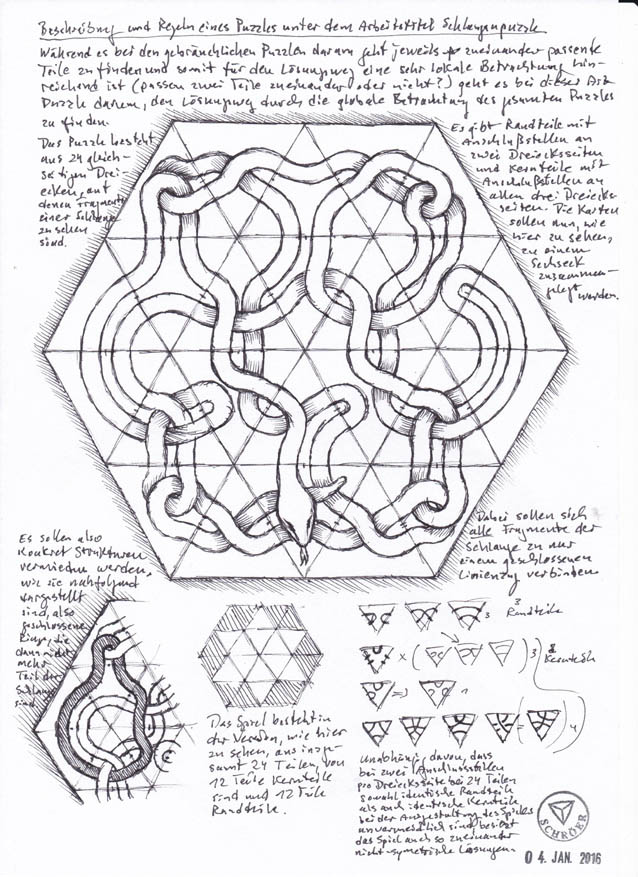 Beschreibung und Regeln eines Puzzles unter dem Arbeitstitel Schlangenpuzzle
Während es bei den gebräuchlichen Puzzlen darum geht jeweils zueinander passende
Teile zu finden und somit für den Lösungsweg eine sehr lokale Betrachtung hin-
reichend ist (passen zwei Teile zueinander oder nicht?) geht es bei dieser Art
Puzzle darum, den Lösungsweg durch die globale Betrachtung des gesamten Puzzles
zu finden.
Das Puzzle besteht
aus 24 gleich-
seitigen Drei-
ecken, auf
denen Fragmente
einer Schlange
zu sehen
sind.
Es gibt Randteile mit
Anschlußstellen an
zwei Dreiecksseiten
und Kernteile mit
Anschlußstellen an
allen drei Dreiecks-
seiten. Die Karten
sollen nun, wie
hier zu sehen,
zu einem
Sechseck
zusammen-
gelegt werden.
Dabei sollen sich
alle Fragmente der
Schlange zu nur
einem geschlossenen
Linienzug verbinden
Es sollen also
konkret Strukturen
vermieden werden,
wie sie nachfolgend
dargestellt
sind, also
geschlossene
Ringe, die
dann nicht
mehr
Teil der
Schlange
sind
Das Spiel besteht in
der Version, wie hier
zu sehen, aus insge-
samt 24 Teilen, von
12 Teile Kernteile
sind und 12 Teile
Randteile.
3 3 Randteile
x ( ) 3 Kernteile
= 1
( = ) 4
Unabhängig davon, dass
bei zwei Anschlussstellen
pro Dreiecksseite bei 24 Teilen
sowohl identische Randteile
als auch identische Kernteile
bei der Ausgestaltung des Spieles
unvermeidlich sind, besitzt
das Spiel auch so zueinander
nicht-symetrische Lösungen.
SCHRÖER
04. JAN. 2016